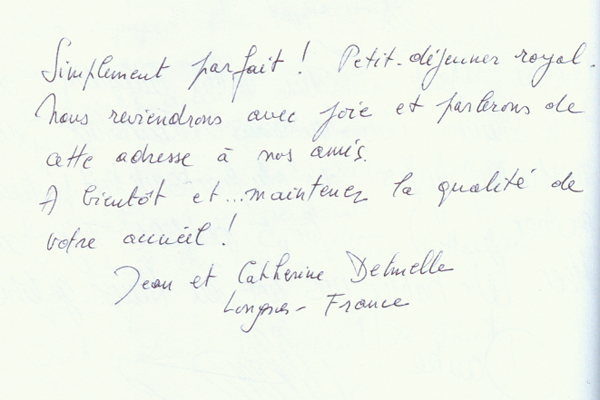 Simplement parfait ! Petit-déjeuner royal.
Nous reviendrons avec joie et parlerons de
cette adresse à nos amis.
A bientôt et...maintenez la qualité de
votre accueil !
Jean et Catherine
France